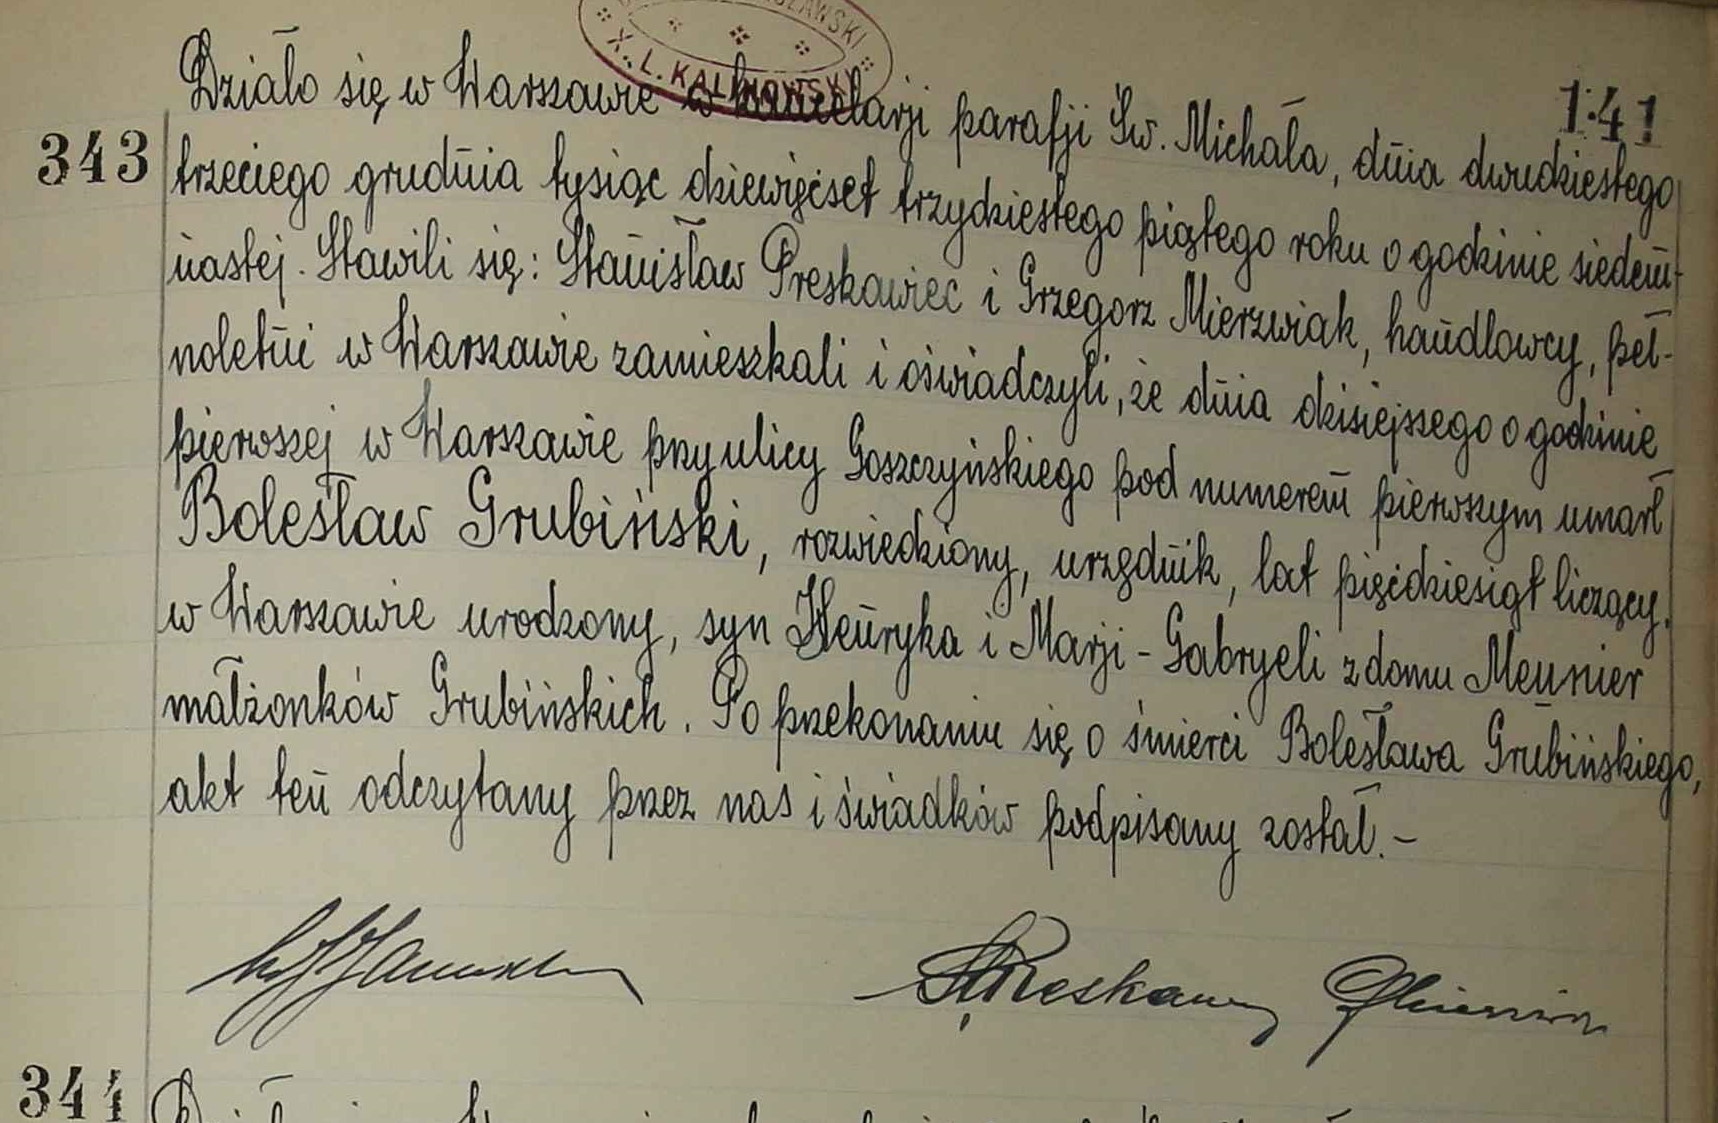 X. L. KALINOWSKI
141
343
Działo się w Warszawie w kancelarji parafji Św. Michała, dnia dwudziestego
trzeciego grudnia tysiąc dziewięćset trzydziestego piątego roku o godzinie siedem-
nastej. Stawili się: Stanisław Preskawiec i Grzegorz Mierzwiak, handlowcy, peł-
noletni w Warszawie zamieszkali i oświadczyli, że dnia dzisiejszego o godzinie
pierwszej w Warszawie przy ulicy Goszczyńskiego pod numerem pierwszym umarł
Bolesław Grubiński, rozwiedziony, urzędnik, lat pięćdziesiąt liczący.
w Warszawie urodzony, syn Henryka i Marji - Gabryeli z domu Meunier
małżonków Grubińskich. Po przekonaniu się o śmierci Bolesława Grubińskiego,
akt ten odczytany przez nas i świadków podpisany został. -
344